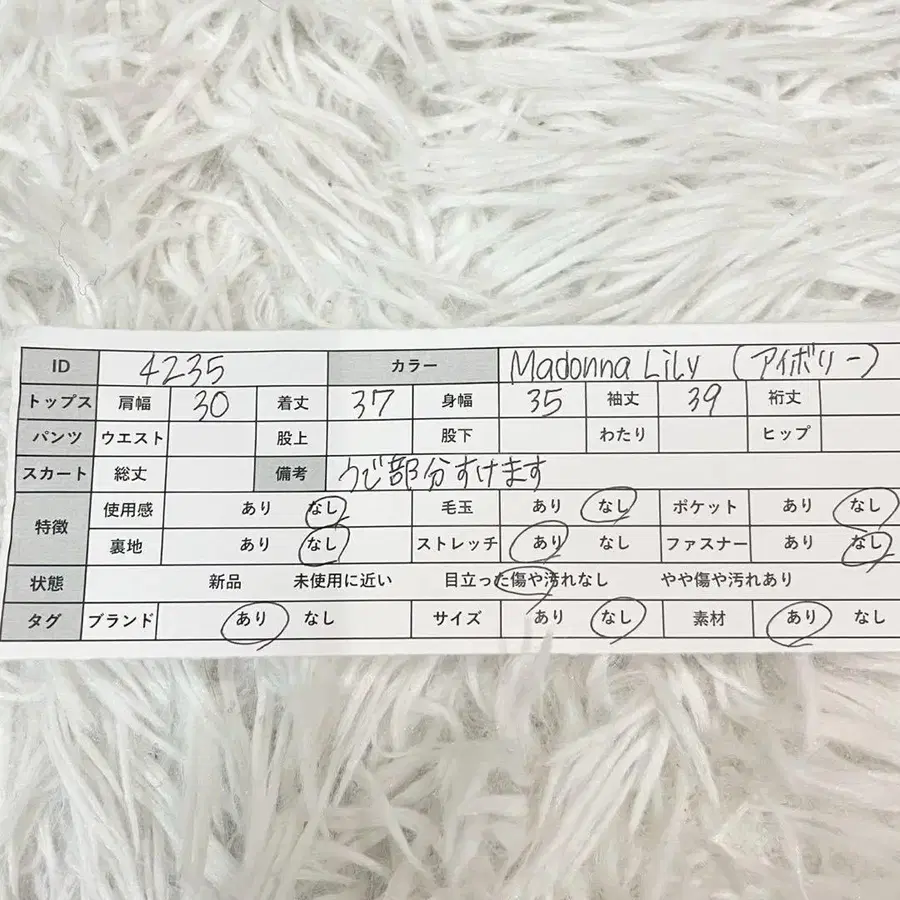 ID 4235 カラー Madonna Lily (アイボリー)
トップス 肩幅 30 着丈 37 身幅 35 袖丈 39 裄丈
パンツ ウエスト 股上 股下 わたり ヒップ
スカート 総丈 備考 うで部分すけます
特徴 使用感 あり なし 毛玉 あり なし ポケット あり なし
裏地 あり なし ストレッチ あり なし ファスナー あり なし
状態 新品 未使用に近い 目立った傷や汚れなし やや傷や汚れあり
タグ ブランド あり なし サイズ あり なし 素材 あり なし